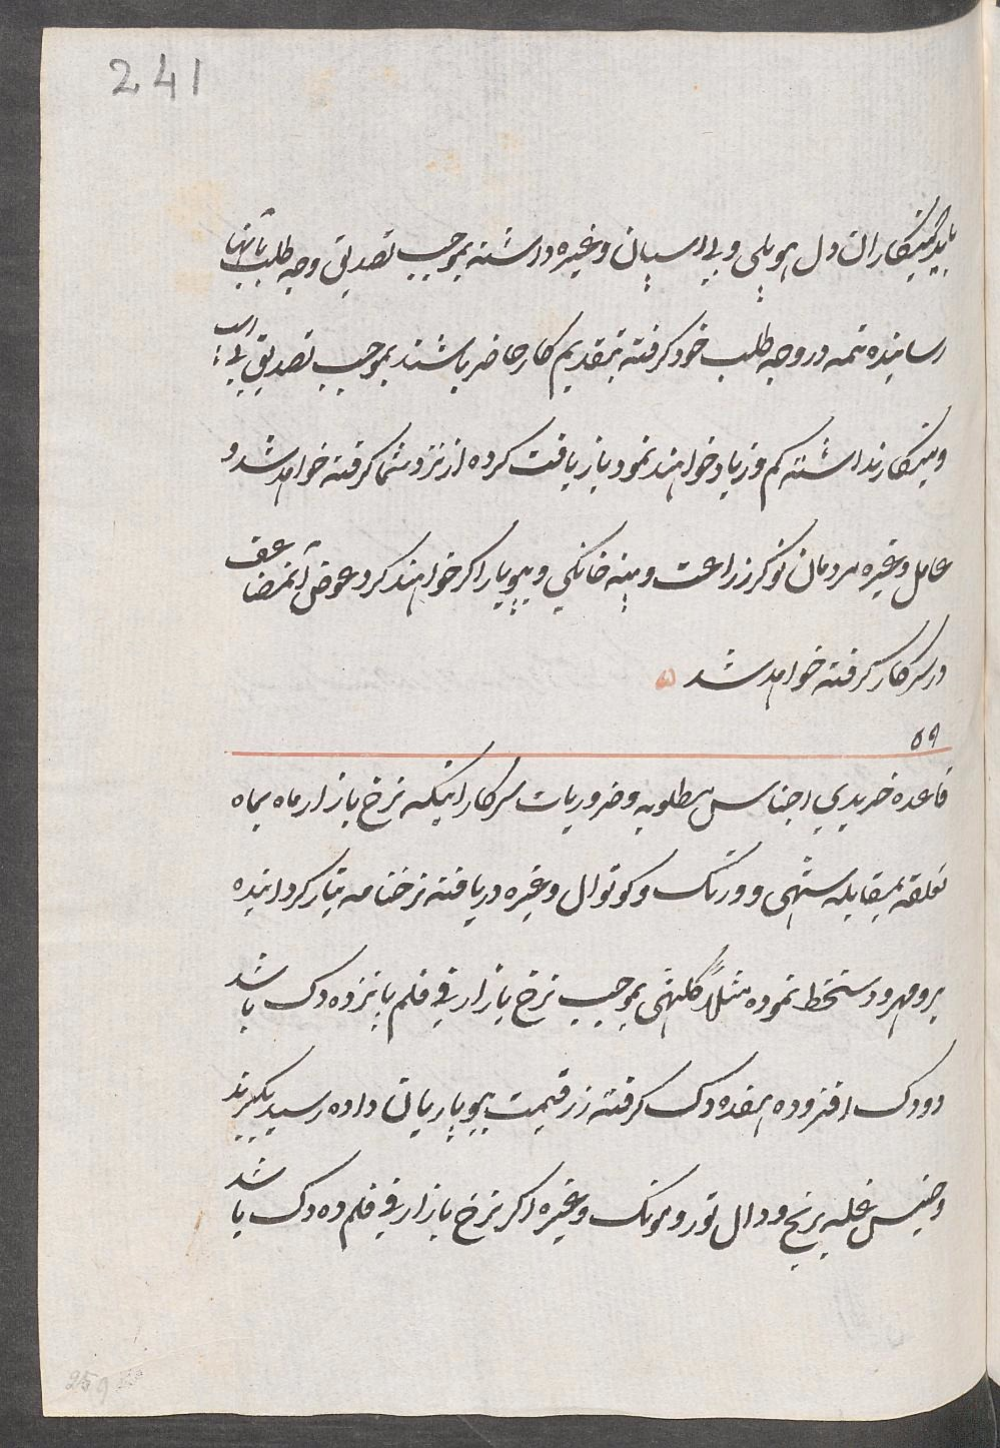 241
باید که بیتکاران دل هویلی و بی اسپان وغیره داشته بموجب تصدیق وجه طلب بآنها
رسانیده تتمه در وجه طلب خود گرفته بتقدیم کار حاضر باشند بموجب تصدیق بی اسپ
و بیتکار نداشته کم و زیاد خواهند نمود بازیافت کرده از نزد شما گرفته خواهد شد و
عامل وغیره مردمان نوکر زراعت و بنیه خانگی و بیوپار اگر خواهند کرد عوض آن مضاعف
در سرکار گرفته خواهد شد
۵۹
قاعده خریدی اجناس مطلوبه و ضروریات سرکار اینکه نرخ بازار ماه بماه
تعلقه بمقابله ستهی و ورتک و کوتوال وغیره دریافته نرخنامه تیار کردانیده
برو مهر و دستخط نموده مثلاً کلتهی بموجب نرخ بازار فی فلم پانزده دک باشد
دو دک افزوده هفده دک گرفته زر قیمت بیوپاریان داده رسید بگیرند
و جنس غله برنج و دال تور و مونک وغیره اگر نرخ بازار فی فلم ده دک باشد